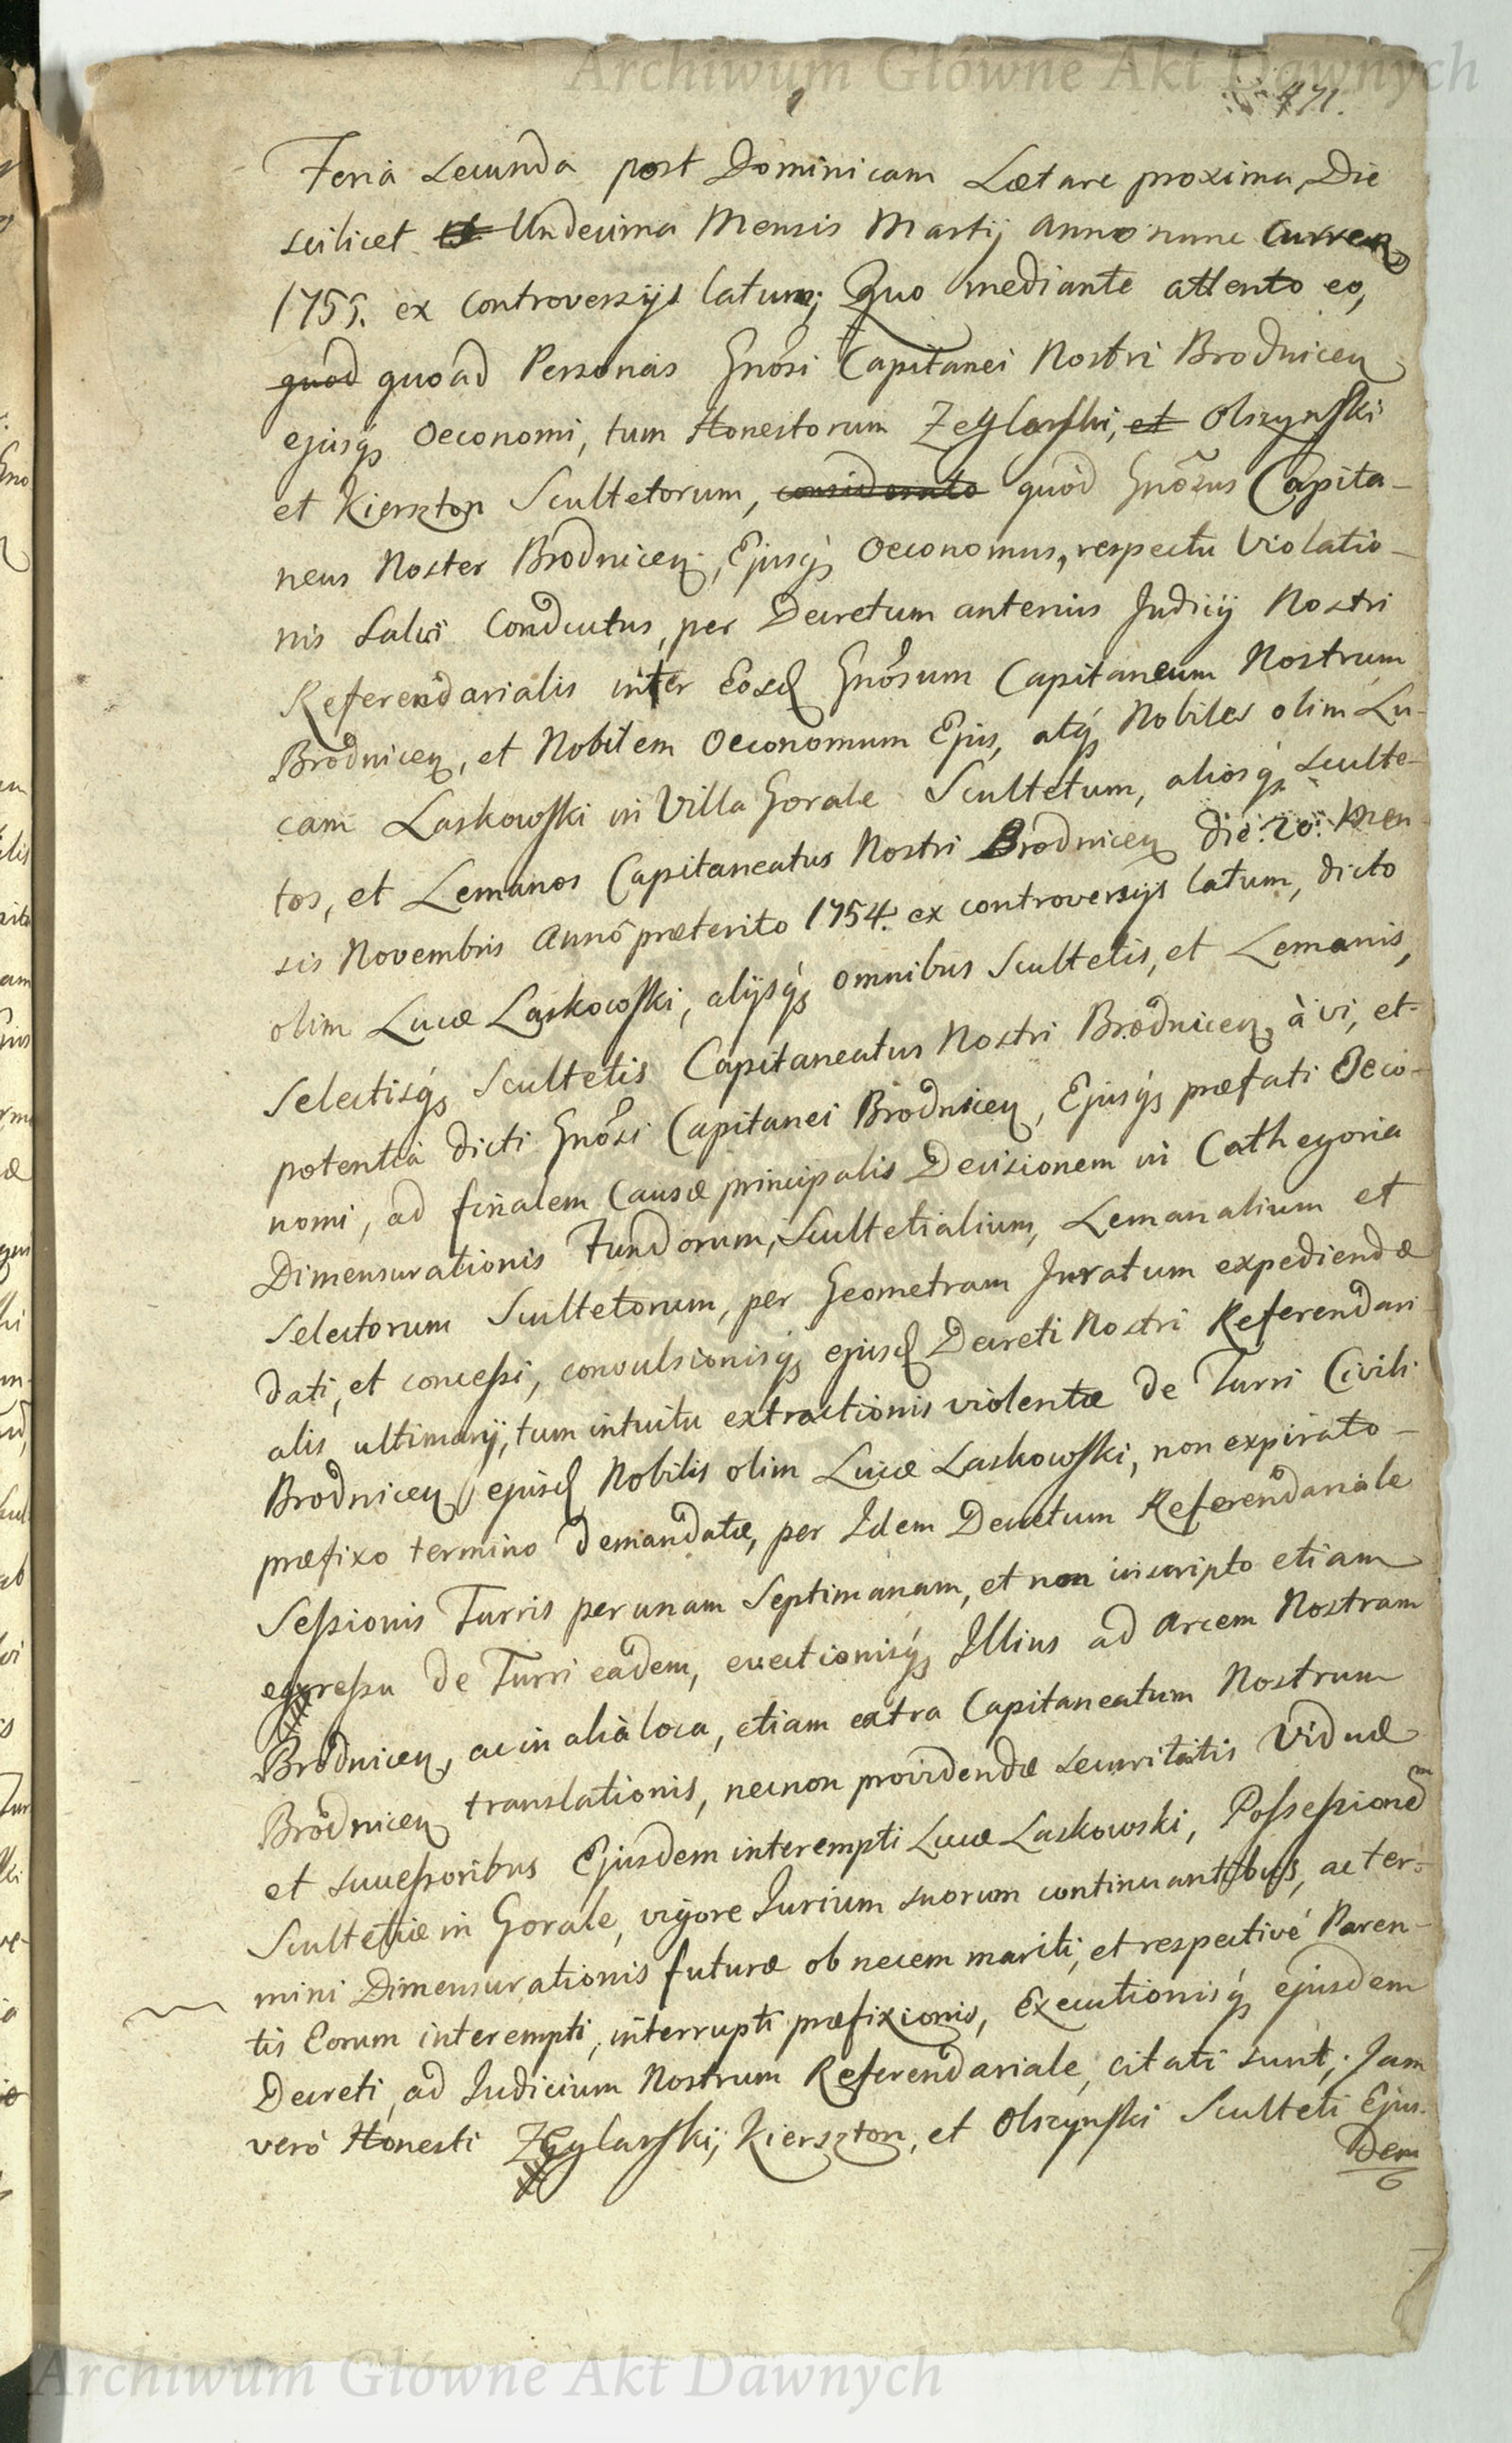 Archiwum Główne Akt Dawnych
471.
Feria secunda post Dominicam Lætare proxima, Die
scilicet Undecima Mensis Martij Anno nunc Curren
1755. ex controversijs latum; Quo mediante attento eo,
quod quoad Personas Gnosi Capitanei Nostri Brodnicen
ejusq Oeconomi, tum Honestorum Zeglarski, et Olszynski
et Kierszton Scultetorum, considerato quòd Gnosus Capita-
neus Noster Brodnicen, Ejusq Oeconomus, respectu Violatio-
nis Salvi Conductus, per Decretum anterius Judicij Nostri
Referendarialis inter Eosd Gnosum Capitaneum Nostrum
Brodnicen, et Nobilem Oeconomum Ejus, atq Nobiles olim Lu-
cam Laskowski in Villa Gorale Scultetum, aliosq Sculte-
tos, et Lemanos Capitaneatus Nostri Brodnicen die 20. Men-
sis Novembris Annô præterito 1754. ex controversijs latum, dicto
olim Lucæ Laskowski, alijsq omnibus Scultetis, et Lemanis,
Selectisq Scultetis Capitaneatus Nostri Brodnicen, à vi, et
potentia dicti Gnosi Capitanei Brodnicen, Ejusq præfati Oeco-
nomi, ad finalem Causæ principalis Decisionem in Cathegoria
Dimensurationis Fundorum, Scultetialium, Lemanalium et
Selectorum Scultetorum, per Geometram Juratum expediendæ
dati, et concessi, convulsionisq ejusd Decreti Nostri Referendari-
alis ultimarij, tum intuitu extractionis violentæ de Turri Civili
Brodnicen ejusd Nobilis olim Lucæ Laskowski, non expirato
præfixo termino demandatæ, per Idem Decretum Referendariale
Sessionis Turris per unam Septimanam, et non inscripto etiam
egressu de Turri eâdem, evectionisq Illius ad Arcem Nostram
Brodnicen, ac in alia loca, etiam extra Capitaneatum Nostrum
Brodnicen translationis, necnon providendæ securitatis Viduæ
et successoribus Ejusdem interempti Lucæ Laskowski, Possessionem
Scultetiæ in Gorale, vigore Jurium suorum continuantibus, ac ter-
mini Dimensurationis futuræ ob necem mariti, et respectivè Paren-
tis Eorum interempti, interrupti præfixionis, Executionisq ejusdem
Decreti, ad Judicium Nostrum Referendariale, citati sunt; Jam
verò Honesti Zeglarski, Kierszton, et Olszynski Sculteti Ejus-
dem
Archiwum Główne Akt Dawnych